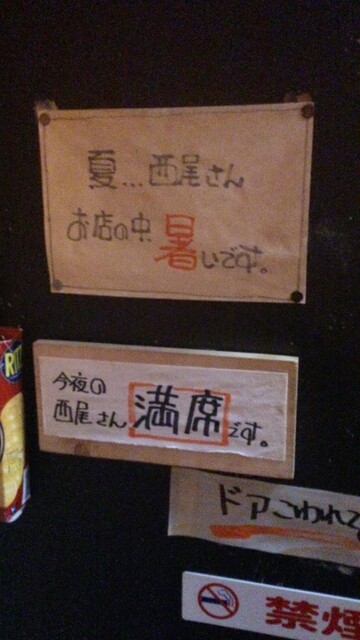 夏…西尾さん
お店の中暑いです。
今夜の
西尾さん満席です。
ドアこわれて
禁煙
RITZ